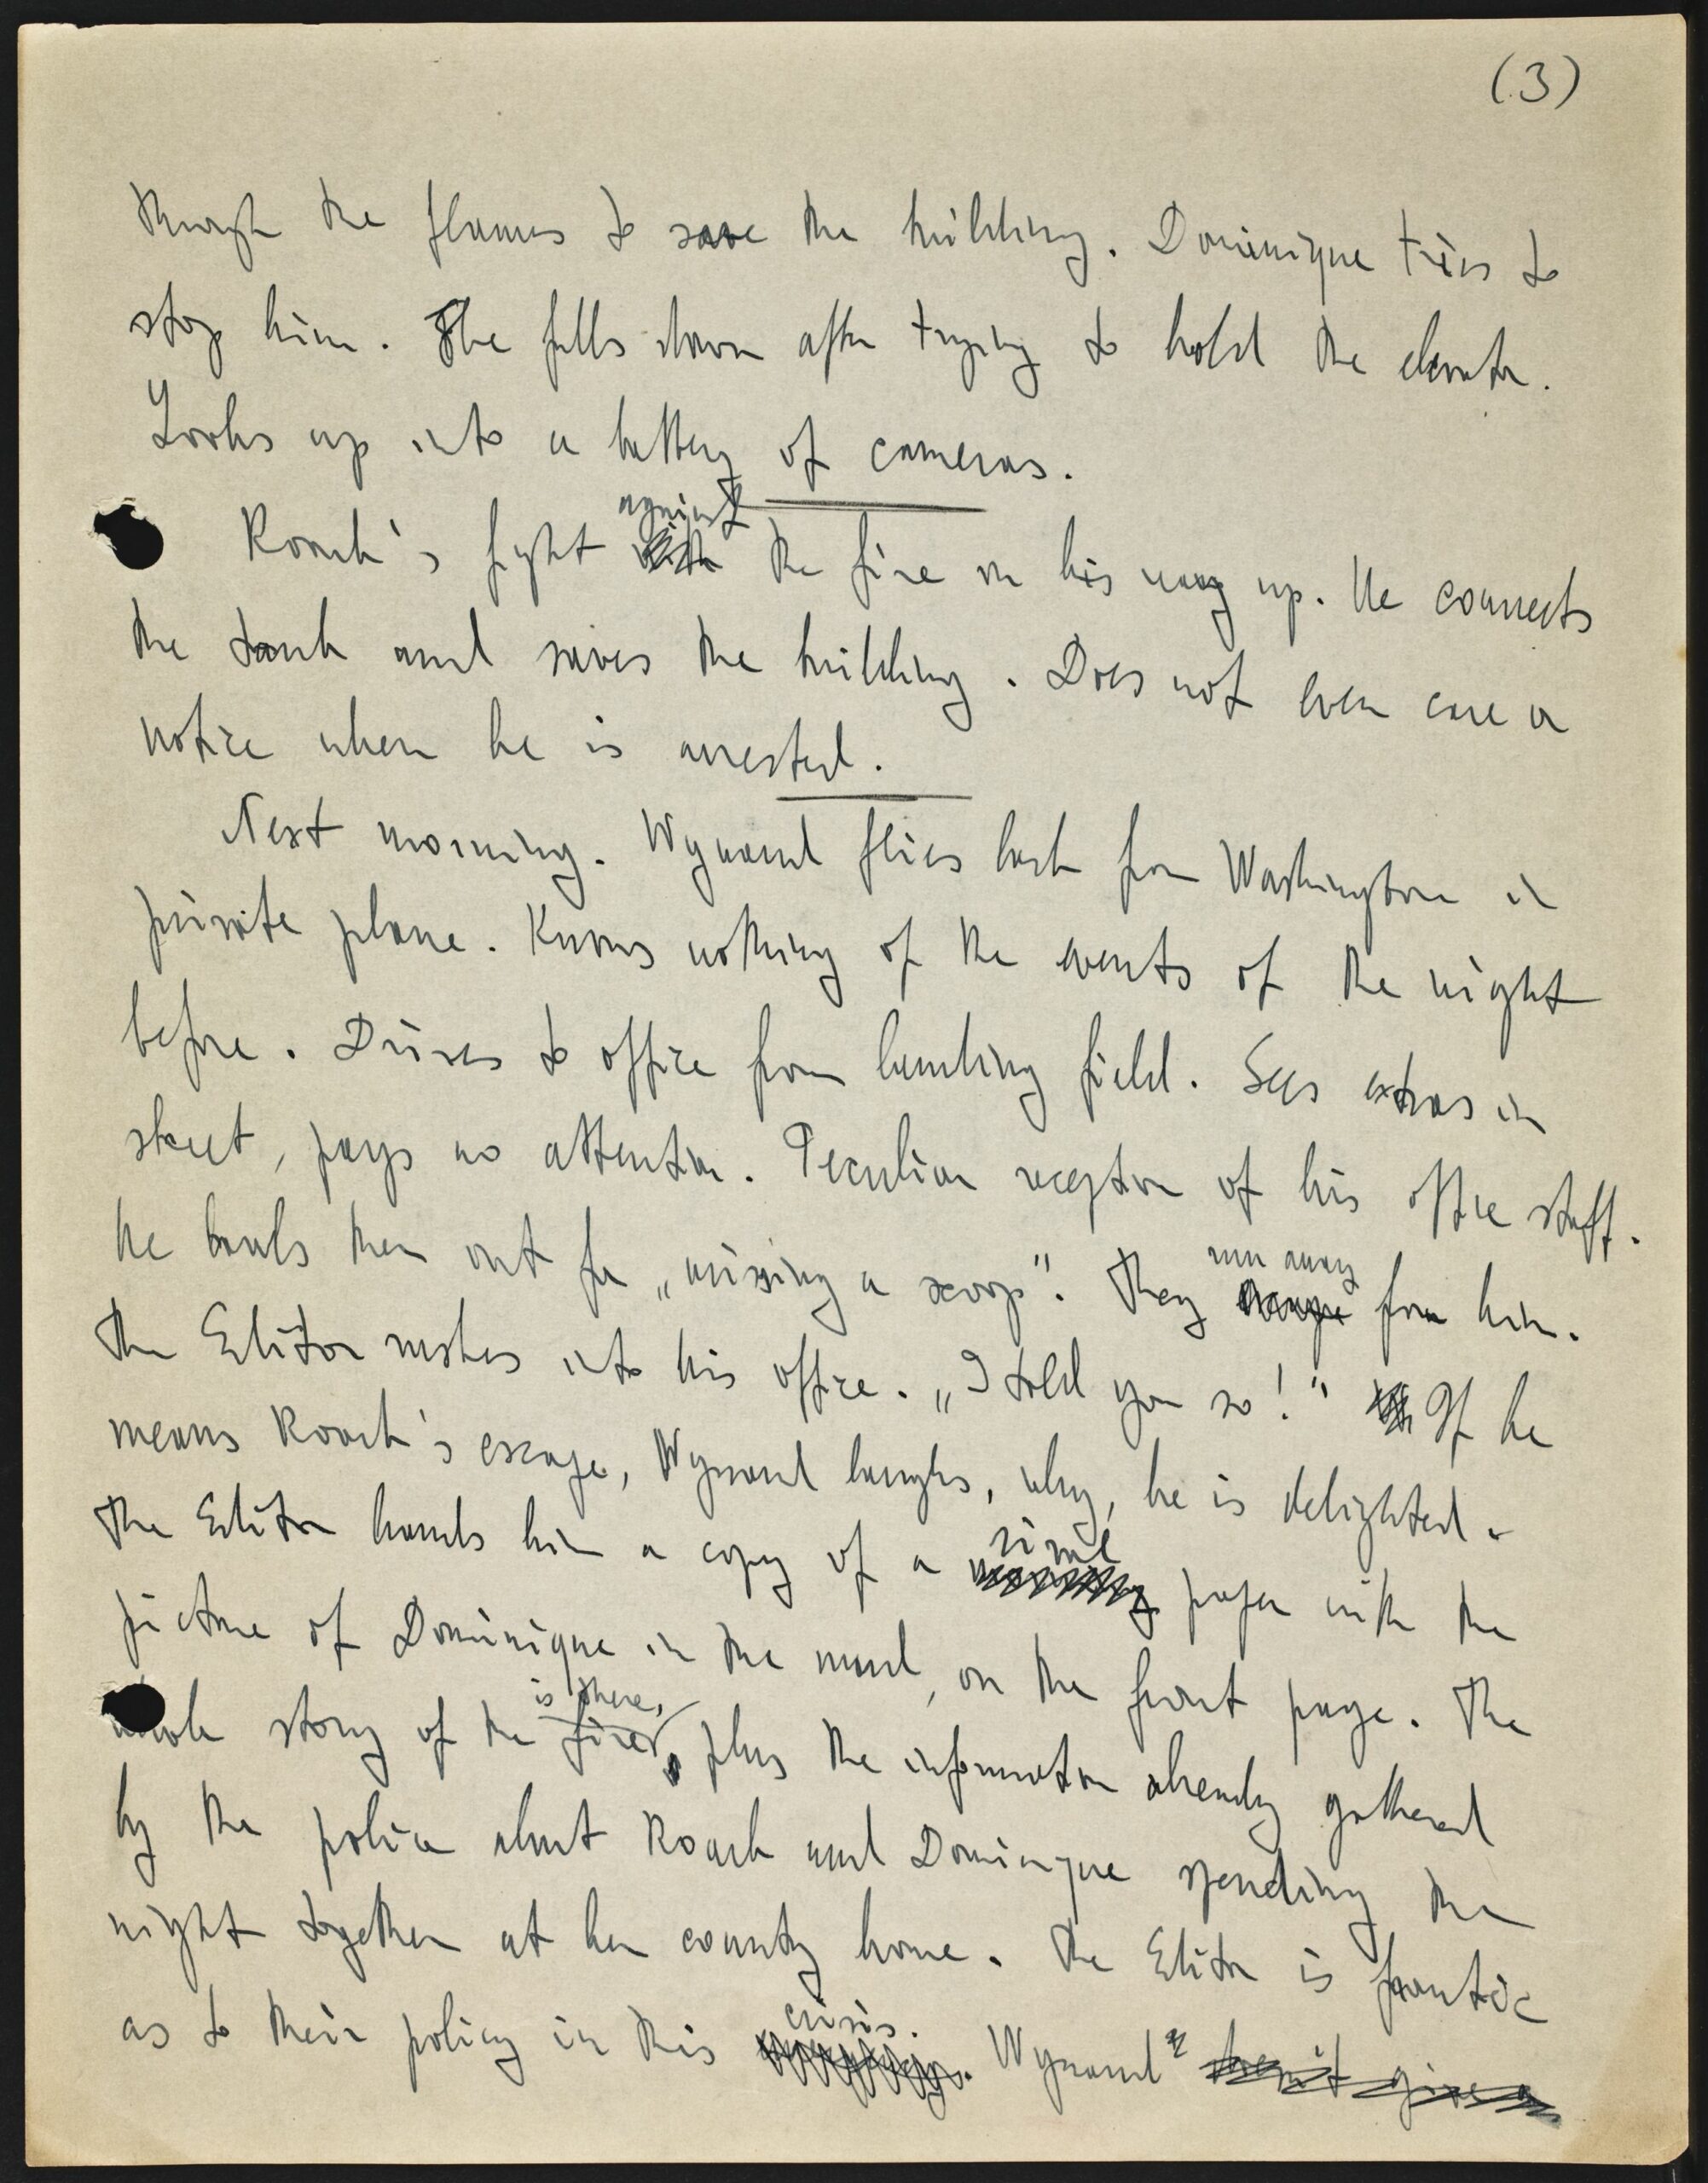 (3)
through the flames to save the building. Dominique tries to
stop him. She falls down after trying to hold the elevator.
Looks up into a battery of cameras.
against
Roark's fight with the fire on his way up. He connects
the tank and saves the building. Does not even care or
notice when he is arrested.
Next morning. Wynand flies back from Washington in
private plane. Knows nothing of the events of the night
before. Drives to office from landing field. Sees extras in
street, pays no attention. Peculiar reception of his office staff.
He bawls them out for „missing a scoop". They run away from him.
The Editor rushes into his office. „I told you so!" If he
means Roark's escape, Wynand laughs, why, he is delighted.
The Editor hands him a copy of a rival paper with the
picture of Dominique in the mud, on the front page. The
whole story of the fire is there, plus the information already gathered
by the police about Roark and Dominique spending the
night together at her country home. The Editor is frantic
as to their policy in this crisis. Wynand